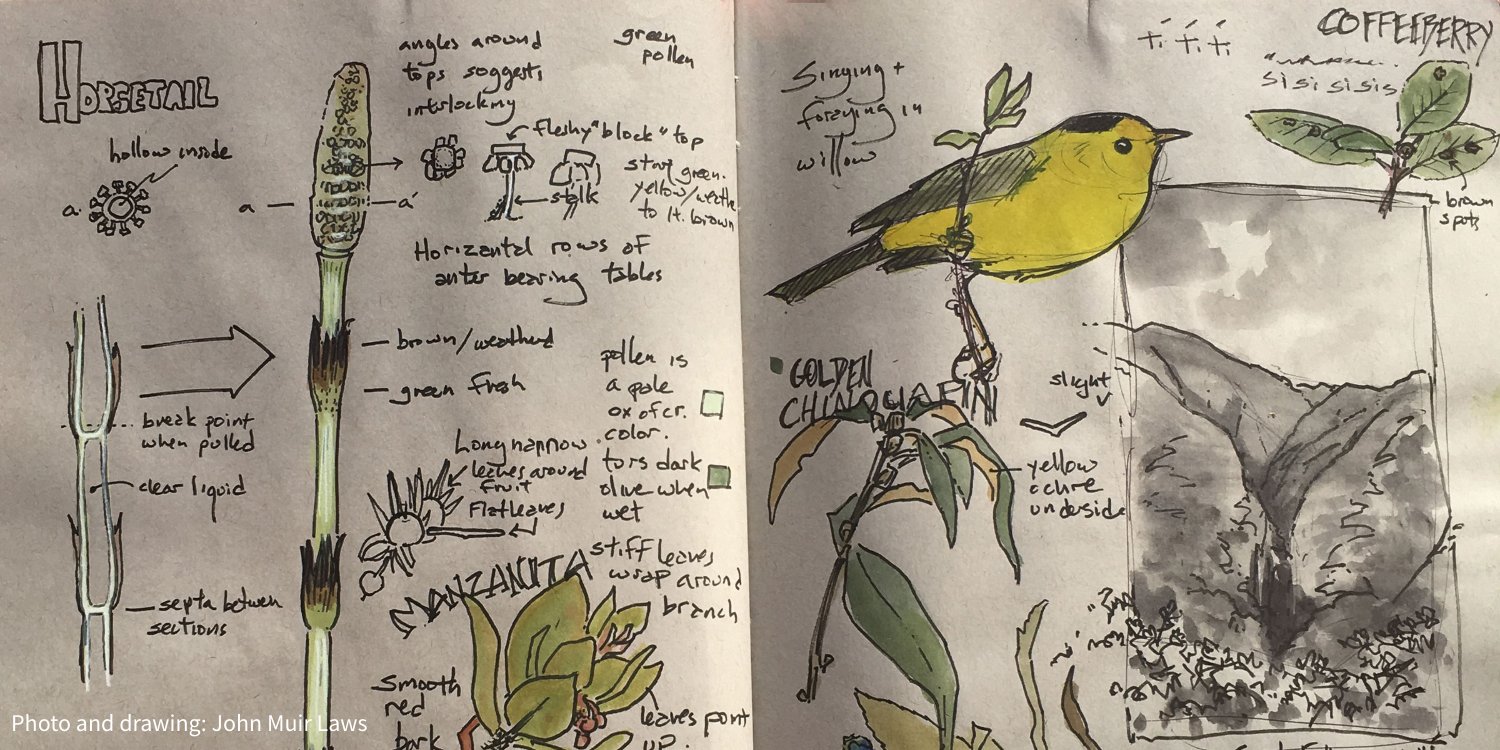 HORSETAIL
hollow inside
a
a
a'
angles around
tops suggests
interlocking
green
pollen
fleshy "block" top
stalk
start green.
yellow/weathe
to lt. brown
Horizantal rows of
anter bearing tables
brown/weatherd
green fresh
pollen is
a pale
color.
turs dark
olive when
wet
break point
when pulled
clear liquid
septa betwen
sections
Long narrow
leaves around
fruit
Flat leaves
MANZANITA
stiff leaves
wrap around
branch
smooth
red
bark
leaves point
up.
Singing +
foraging in
willow
Ti Ti Ti
si si si sis
COFFEEBERRY
brown
spots
GOLDEN
CHINQUAPIN
slight
v
yellow
ochre
underside
Photo and drawing: John Muir Laws